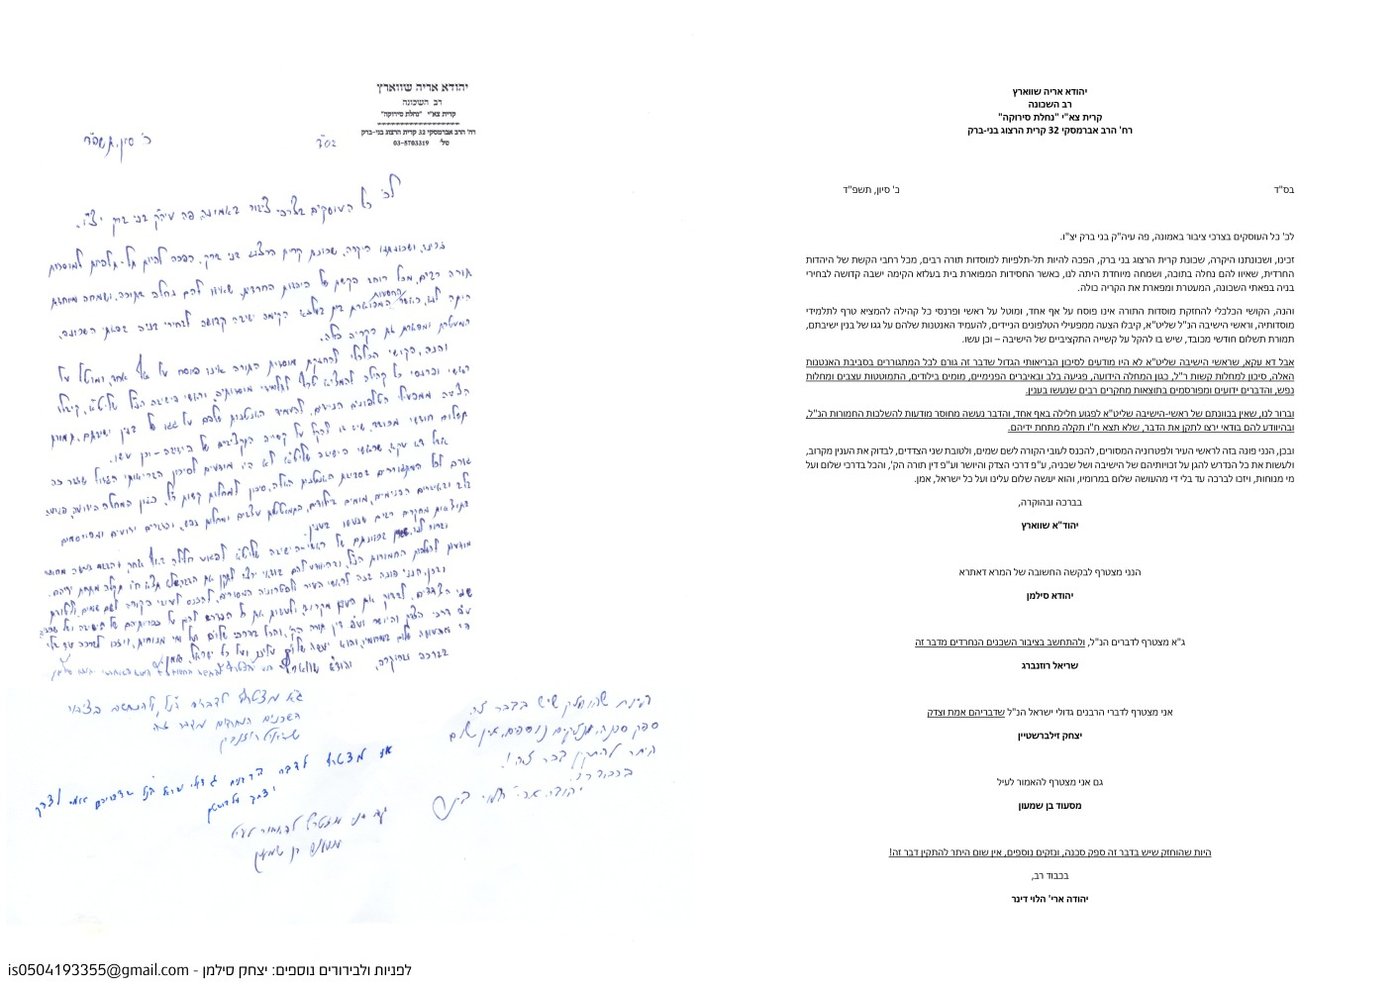 יהודא אריה שווארץ
רב השכונה
קרית צא"י "נחלת סירוקה"
רח' הרב אברמסקי 32 קרית הרצוג בני-ברק
בס"ד
כ' סיון, תשפ"ד
לכ' כל העוסקים בצרכי ציבור באמונה, פה עיה"ק בני ברק יצ"ו.
זכינו, ושכונתנו היקרה, שכונת קרית הרצוג בני ברק, הפכה להיות תל-תלפיות למוסדות תורה רבים, מכל רחבי הקשת של היהדות
החרדית, שאיוו להם נחלה בתוכה, ושמחה מיוחדת היתה לנו, כאשר החסידות המפוארת בית בעלזא הקימה ישבה קדושה לבחירי
בניה בפאתי השכונה, המעטרת ומפארת את הקריה כולה.
והנה, הקושי הכלכלי להחזקת מוסדות התורה אינו פוסח על אף אחד, ומוטל על ראשי ופרנסי כל קהילה להמציא טרף לתלמידי
מוסדותיה, וראשי הישיבה הנ"ל שליט"א, קיבלו הצעה ממפעילי הטלפונים הניידים, להעמיד האנטנות שלהם על גגו של בנין ישיבתם,
תמורת תשלום חודשי מכובד, שיש בו להקל על קשייה התקציביים של הישיבה – וכן עשו.
אבל דא עקא, שראשי הישיבה שליט"א לא היו מודעים לסיכון הבריאותי הגדול שדבר זה גורם לכל המתגוררים בסביבת האנטנות
האלה, סיכון למחלות קשות ר"ל, כגון המחלה הידועה, פגיעה בלב ובאיברים הפנימיים, מומים בילודים, התמוטטות עצבים ומחלות
נפש, והדברים ידועים ומפורסמים בתוצאות מחקרים רבים שנעשו בענין.
וברור לנו, שאין בכוונתם של ראשי-הישיבה שליט"א לפגוע חלילה באף אחד, והדבר נעשה מחוסר מודעות להשלכות החמורות הנ"ל,
ובהיוודע להם בודאי ירצו לתקן את הדבר, שלא תצא ח"ו תקלה מתחת ידיהם.
ובכן, הנני פונה בזה לראשי העיר ולפטרוניה המסורים, להכנס לעובי הקורה לשם שמים, ולטובת שני הצדדים, לבדוק את הענין מקרוב,
ולעשות את כל הנדרש להגן על זכויותיהם של הישיבה ושל שכניה, ע"פ דרכי הצדק והיושר וע"פ דין תורה הק', והכל בדרכי שלום ועל
מי מנוחות, ויזכו לברכה עד בלי די מהעושה שלום במרומיו, והוא יעשה שלום עלינו ועל כל ישראל, אמן.
בברכה ובהוקרה,
יהוד"א שווארץ
הנני מצטרף לבקשה החשובה של המרא דאתרא
יהודא סילמן
ג"א מצטרף לדברים הנ"ל, ולהתחשב בציבור השכנים הנחרדים מדבר זה
שריאל רוזנברג
אני מצטרף לדברי הרבנים גדולי ישראל הנ"ל שדבריהם אמת וצדק
יצחק זילברשטיין
גם אני מצטרף להאמור לעיל
מסעוד בן שמעון
היות שהוחזק שיש בדבר זה ספק סכנה, ונזקים נוספים, אין שום היתר להתקין דבר זה!
בכבוד רב,
יהודה ארי' הלוי דינר
יהודא אריה שווארץ
רב השכונה
קרית צא"י "נחלת סירוקה"
רח' הרב אברמסקי 32 קרית הרצוג בני-ברק
טל' 03-5703319
בס"ד
כ' סיון, תשפ"ד
לכ' כל העוסקים בצרכי ציבור באמונה, פה עיה"ק בני ברק יצ"ו.
זכינו, ושכונתנו היקרה, שכונת קרית הרצוג בני ברק, הפכה להיות תל-תלפיות למוסדות
תורה רבים, מכל רוחבי הקשת של היהדות החרדית, שאיוו להם נחלה בתוכה, ושמחה מיוחדת
היתה לנו, כאשר החסידות המפוארת בית בעלזא הקימה ישיבה קדושה לבחירי בניה בפאתי השכונה,
המעטרת ומפארת את הקריה כולה.
והנה, הקושי הכלכלי להחזקת מוסדות התורה אינו פוסח על אף אחד, ומוטל על
ראשי ופרנסי כל קהילה להמציא טרף לתלמידי מוסדותיה, וראשי הישיבה הנ"ל שליט"א, קיבלו
הצעה ממפעילי הטלפונים הניידים, להעמיד האנטנות שלהם על גגו של בנין ישיבתם, תמורת
תשלום חודשי מכובד, שיש בו להקל על קשייה התקציביים של הישיבה - וכן עשו.
אבל דא עקא, שראשי הישיבה שליט"א לא היו מודעים לסיכון הבריאותי הגדול שדבר זה
גורם לכל המתגוררים בסביבת האנטנות האלה, סיכון למחלות קשות ר"ל, כגון המחלה הידועה, פגיעה
בלב ובאיברים הפנימיים, מומים בילודים, התמוטטות עצבים ומחלות נפש, והדברים ידועים ומפורסמים
בתוצאות מחקרים רבים שנעשו בענין.
וברור לנו, שאין בכוונתם של ראשי-הישיבה שליט"א לפגוע חלילה באף אחד, והדבר נעשה מחוסר
מודעות להשלכות החמורות הנ"ל, ובהיוודע להם בודאי ירצו לתקן את הדבר, שלא תצא ח"ו תקלה מתחת ידיהם.
ובכן, הנני פונה בזה לראשי העיר ולפטרוניה המסורים, להכנס לעובי הקורה לשם שמים, ולטובת
שני הצדדים, לבדוק את הענין מקרוב, ולעשות את כל הנדרש להגן על זכויותיהם של הישיבה ושל שכניה,
ע"פ דרכי הצדק והיושר וע"פ דין תורה הק', והכל בדרכי שלום ועל מי מנוחות, ויזכו לברכה עד בלי
די מהעושה שלום במרומיו, והוא יעשה שלום עלינו ועל כל ישראל, אמן.
בברכה ובהוקרה, יהוד"א שווארץ
הנני מצטרף לבקשה החשובה של המרא דאתרא יהודא סילמן
ג"א מצטרף לדברים הנ"ל, ולהתחשב בציבור
השכנים הנחרדים מדבר זה
שריאל רוזנברג
היות שהוחזק שיש בדבר זה
ספק סכנה, ונזקים נוספים, אין שום
היתר להתקין דבר זה!
בכבוד רב,
יהודה ארי' הלוי דינר
אני מצטרף לדברי הרבנים גדולי ישראל הנ"ל שדבריהם אמת וצדק
יצחק זילברשטיין
גם אני מצטרף להאמור לעיל
מסעוד בן שמעון
לפניות ולבירורים נוספים: יצחק סילמן - is0504193355@gmail.com